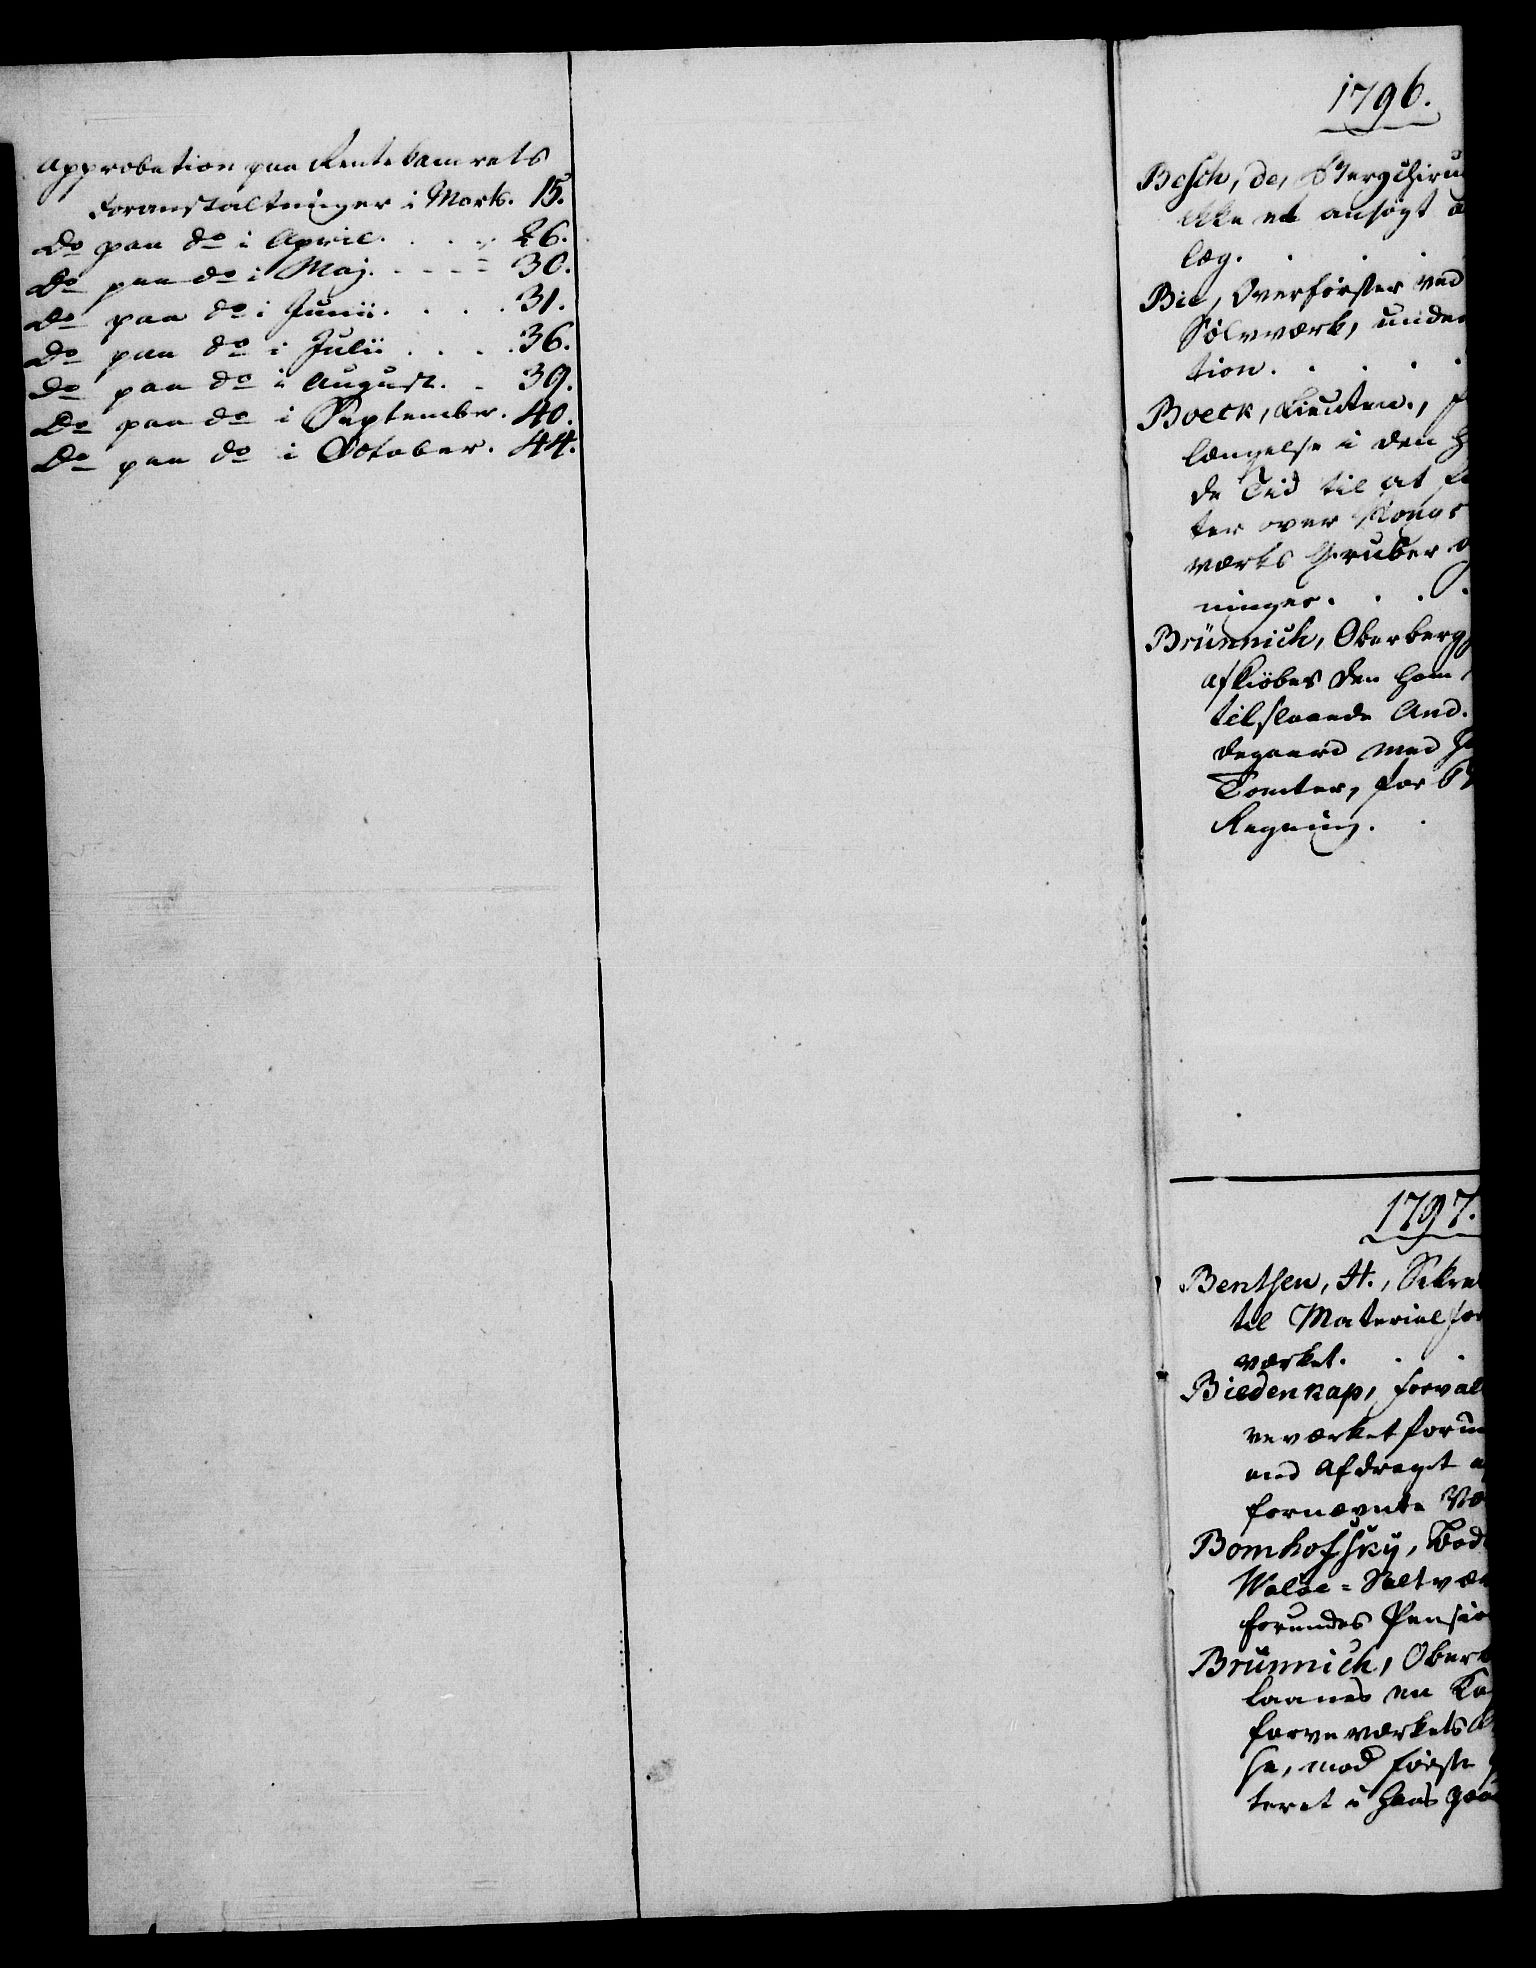 Approbation paa Rentekamrets
Foranstaltninger i Marts. 15.
Do paa do i April. . . . 26.
Do paa do i Maj. . . . 30.
Do paa do i Junii. . . . 31.
Do paa do i Julii . . . . 36.
Do paa do i August. . 39.
Do paa do i September. 40.
Do paa do i October. 44.
1796.
Besch, de, Bergchiru
ikke et ansøgt
læg. . . .
Bie, Overførster ved
Sølvværk, unde
tion. . . . .
Boeck, Lieuten.,
længelse i den
de Tid til at
ter over Kongs
værks Gruber
ninger. . . .
Brünnich, Oberberg
afkiøbes den ham
tilstaaende And.
degaard med
Tomter, for
Regning. .
1797.
Benthen, H., Sekre
til Materialfor
værket. . .
Biedenkap, forval
veværket forun
end Afdraget
fornævnte Væ
Bomhofsky, Bod
Waløe-Saltvæ
forundes Pensio
Brünnich, Ober
laanes en Ca
farveværkets
se, mod første
teret i hans